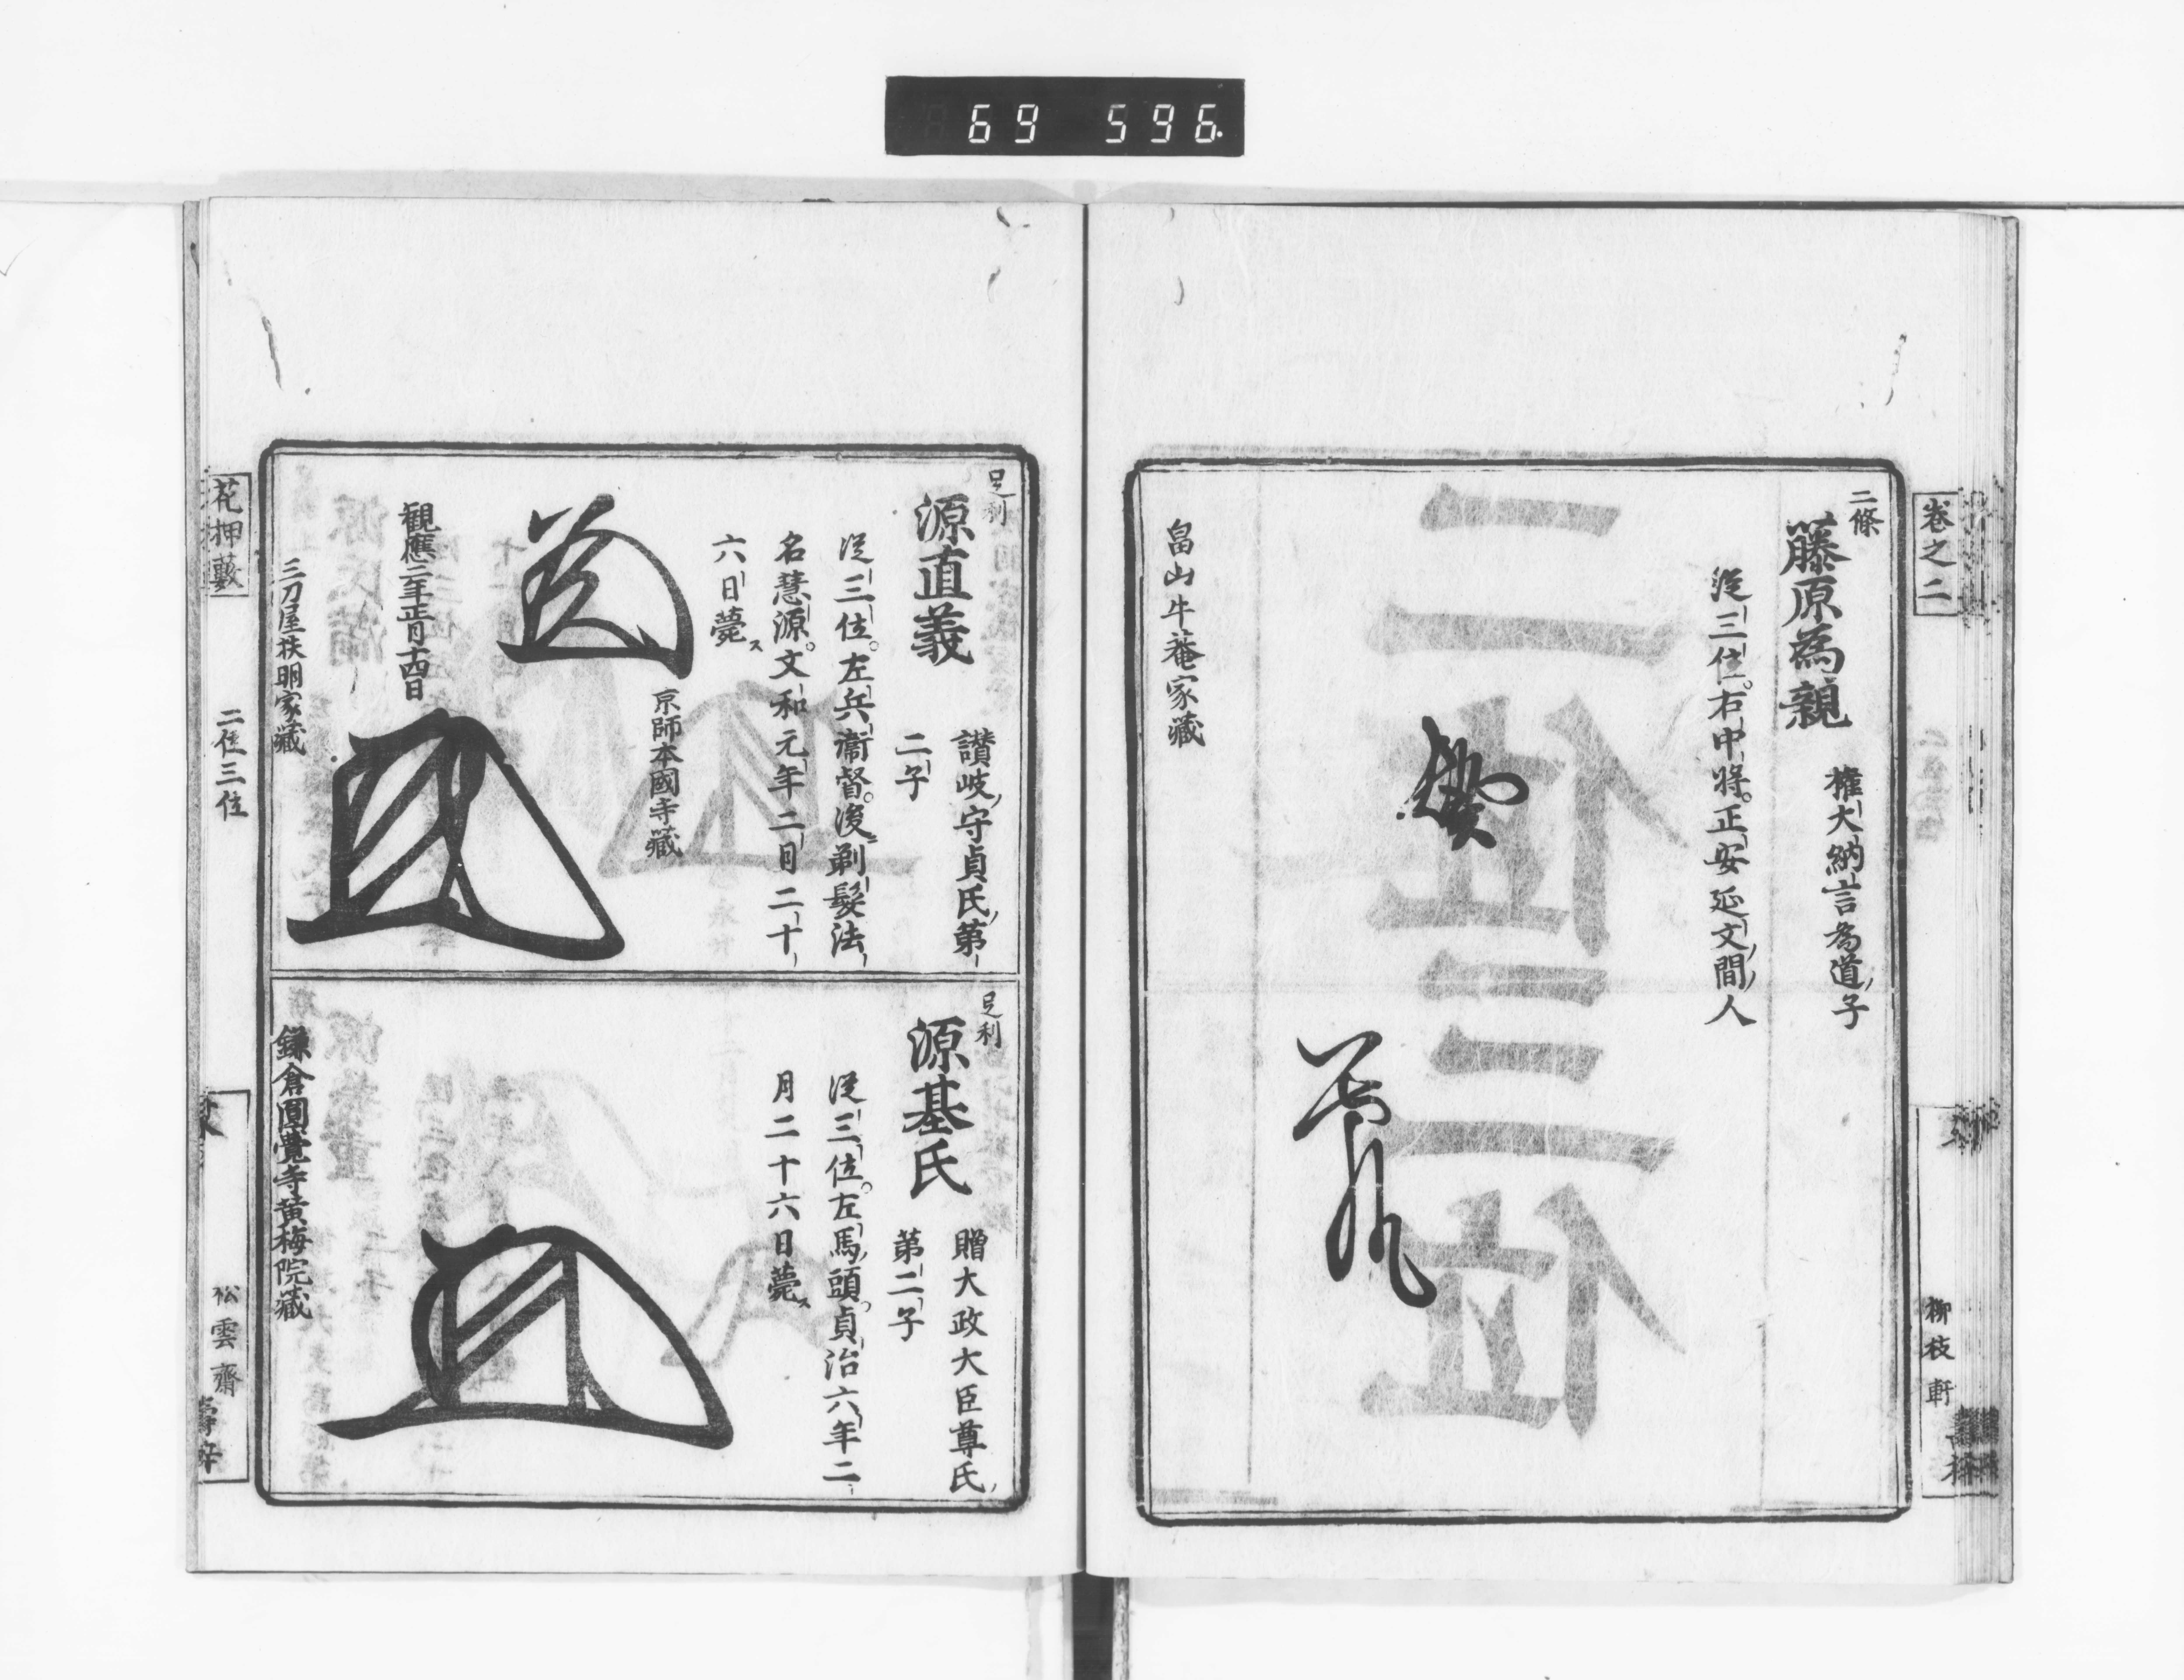 69 596.
卷之二
柳枝軒
二條
藤原為親
權大納言為道子
從三位。右中將。正安延文間人
畠山牛菴家藏
足利
源直義
讃岐守貞氏第
二子
從三位。左兵衞督。後剃髮法
名慧源。文和元年二月二十
六日薨ス
京師本國寺藏
觀應二年正月十四日
三刀屋扶明家藏
足利
源基氏
贈大政大臣尊氏
第二子
從三位。左馬頭。貞治六年二
月二十六日薨ス
鎌倉圓覺寺黄梅院藏
花押藪
二位三位
松雲齋